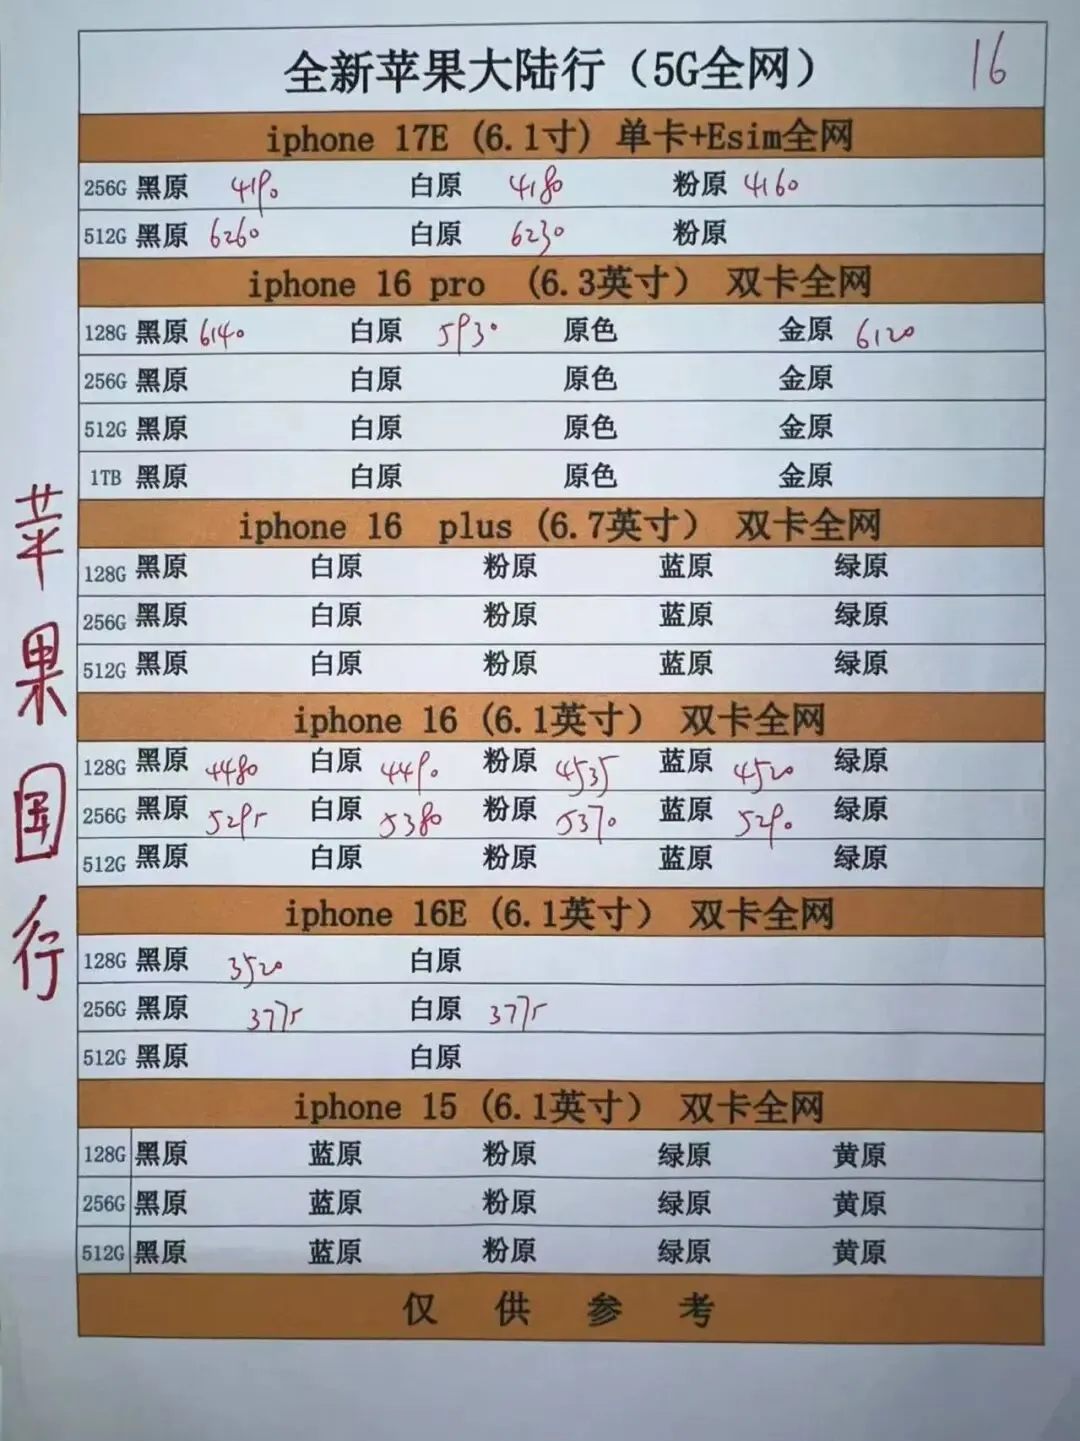 全新苹果大陆行（5G全网） 16
iphone 17E (6.1寸) 单卡+Esim全网
256G 黑原 4190 白原 4180 粉原 4160
512G 黑原 6260 白原 6230 粉原
iphone 16 pro （6.3英寸） 双卡全网
128G 黑原 6140 白原 5930 原色 金原 6120
256G 黑原 白原 原色 金原
512G 黑原 白原 原色 金原
1TB 黑原 白原 原色 金原
iphone 16 plus (6.7英寸） 双卡全网
128G 黑原 白原 粉原 蓝原 绿原
256G 黑原 白原 粉原 蓝原 绿原
512G 黑原 白原 粉原 蓝原 绿原
iphone 16 (6.1英寸） 双卡全网
128G 黑原 4480 白原 4490 粉原 4535 蓝原 4520 绿原
256G 黑原 5295 白原 5380 粉原 5370 蓝原 5290 绿原
512G 黑原 白原 粉原 蓝原 绿原
iphone 16E (6.1英寸） 双卡全网
128G 黑原 3520 白原
256G 黑原 3775 白原 3775
512G 黑原 白原
iphone 15 (6.1英寸） 双卡全网
128G 黑原 蓝原 粉原 绿原 黄原
256G 黑原 蓝原 粉原 绿原 黄原
512G 黑原 蓝原 粉原 绿原 黄原
仅 供 参 考
苹果国行